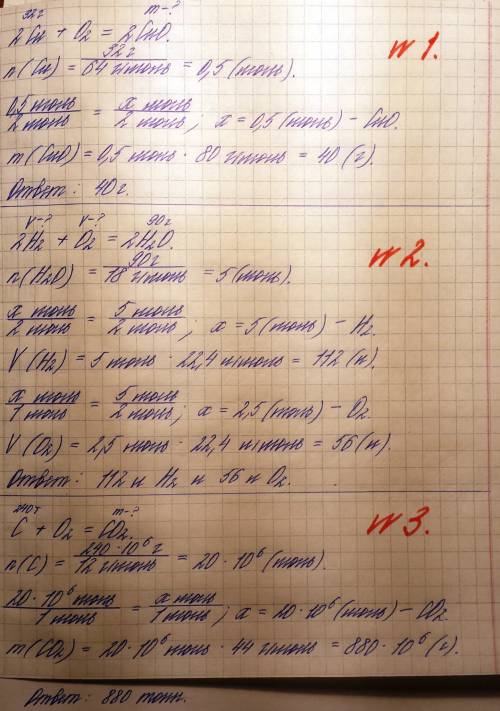 32г m-?
2Cu + O₂ = 2CuO. №1.
n(Cu) = 32г / 64 г/моль = 0,5 (моль).
0,5 моль / 2 моль = x моль / 2 моль; x = 0,5 (моль) - CuO.
m(CuO) = 0,5 моль · 80 г/моль = 40 (г).
Ответ: 40 г.
V-? V-? 90г
2H₂ + O₂ = 2H₂O. №2.
n(H₂O) = 90г / 18 г/моль = 5 (моль).
x моль / 2 моль = 5 моль / 2 моль; x = 5 (моль) - H₂.
V(H₂) = 5 моль · 22,4 л/моль = 112 (л).
x моль / 1 моль = 5 моль / 2 моль; x = 2,5 (моль) - O₂.
V(O₂) = 2,5 моль · 22,4 л/моль = 56 (л).
Ответ: 112 л H₂ и 56 л O₂.
240т m-?
C + O₂ = CO₂. №3.
n(C) = 240·10⁶ г / 12 г/моль = 20·10⁶ (моль).
20·10⁶ моль / 1 моль = x моль / 1 моль; x = 20·10⁶ (моль) - CO₂
m(CO₂) = 20·10⁶ моль · 44 г/моль = 880·10⁶ (г).
Ответ: 880 тонн.